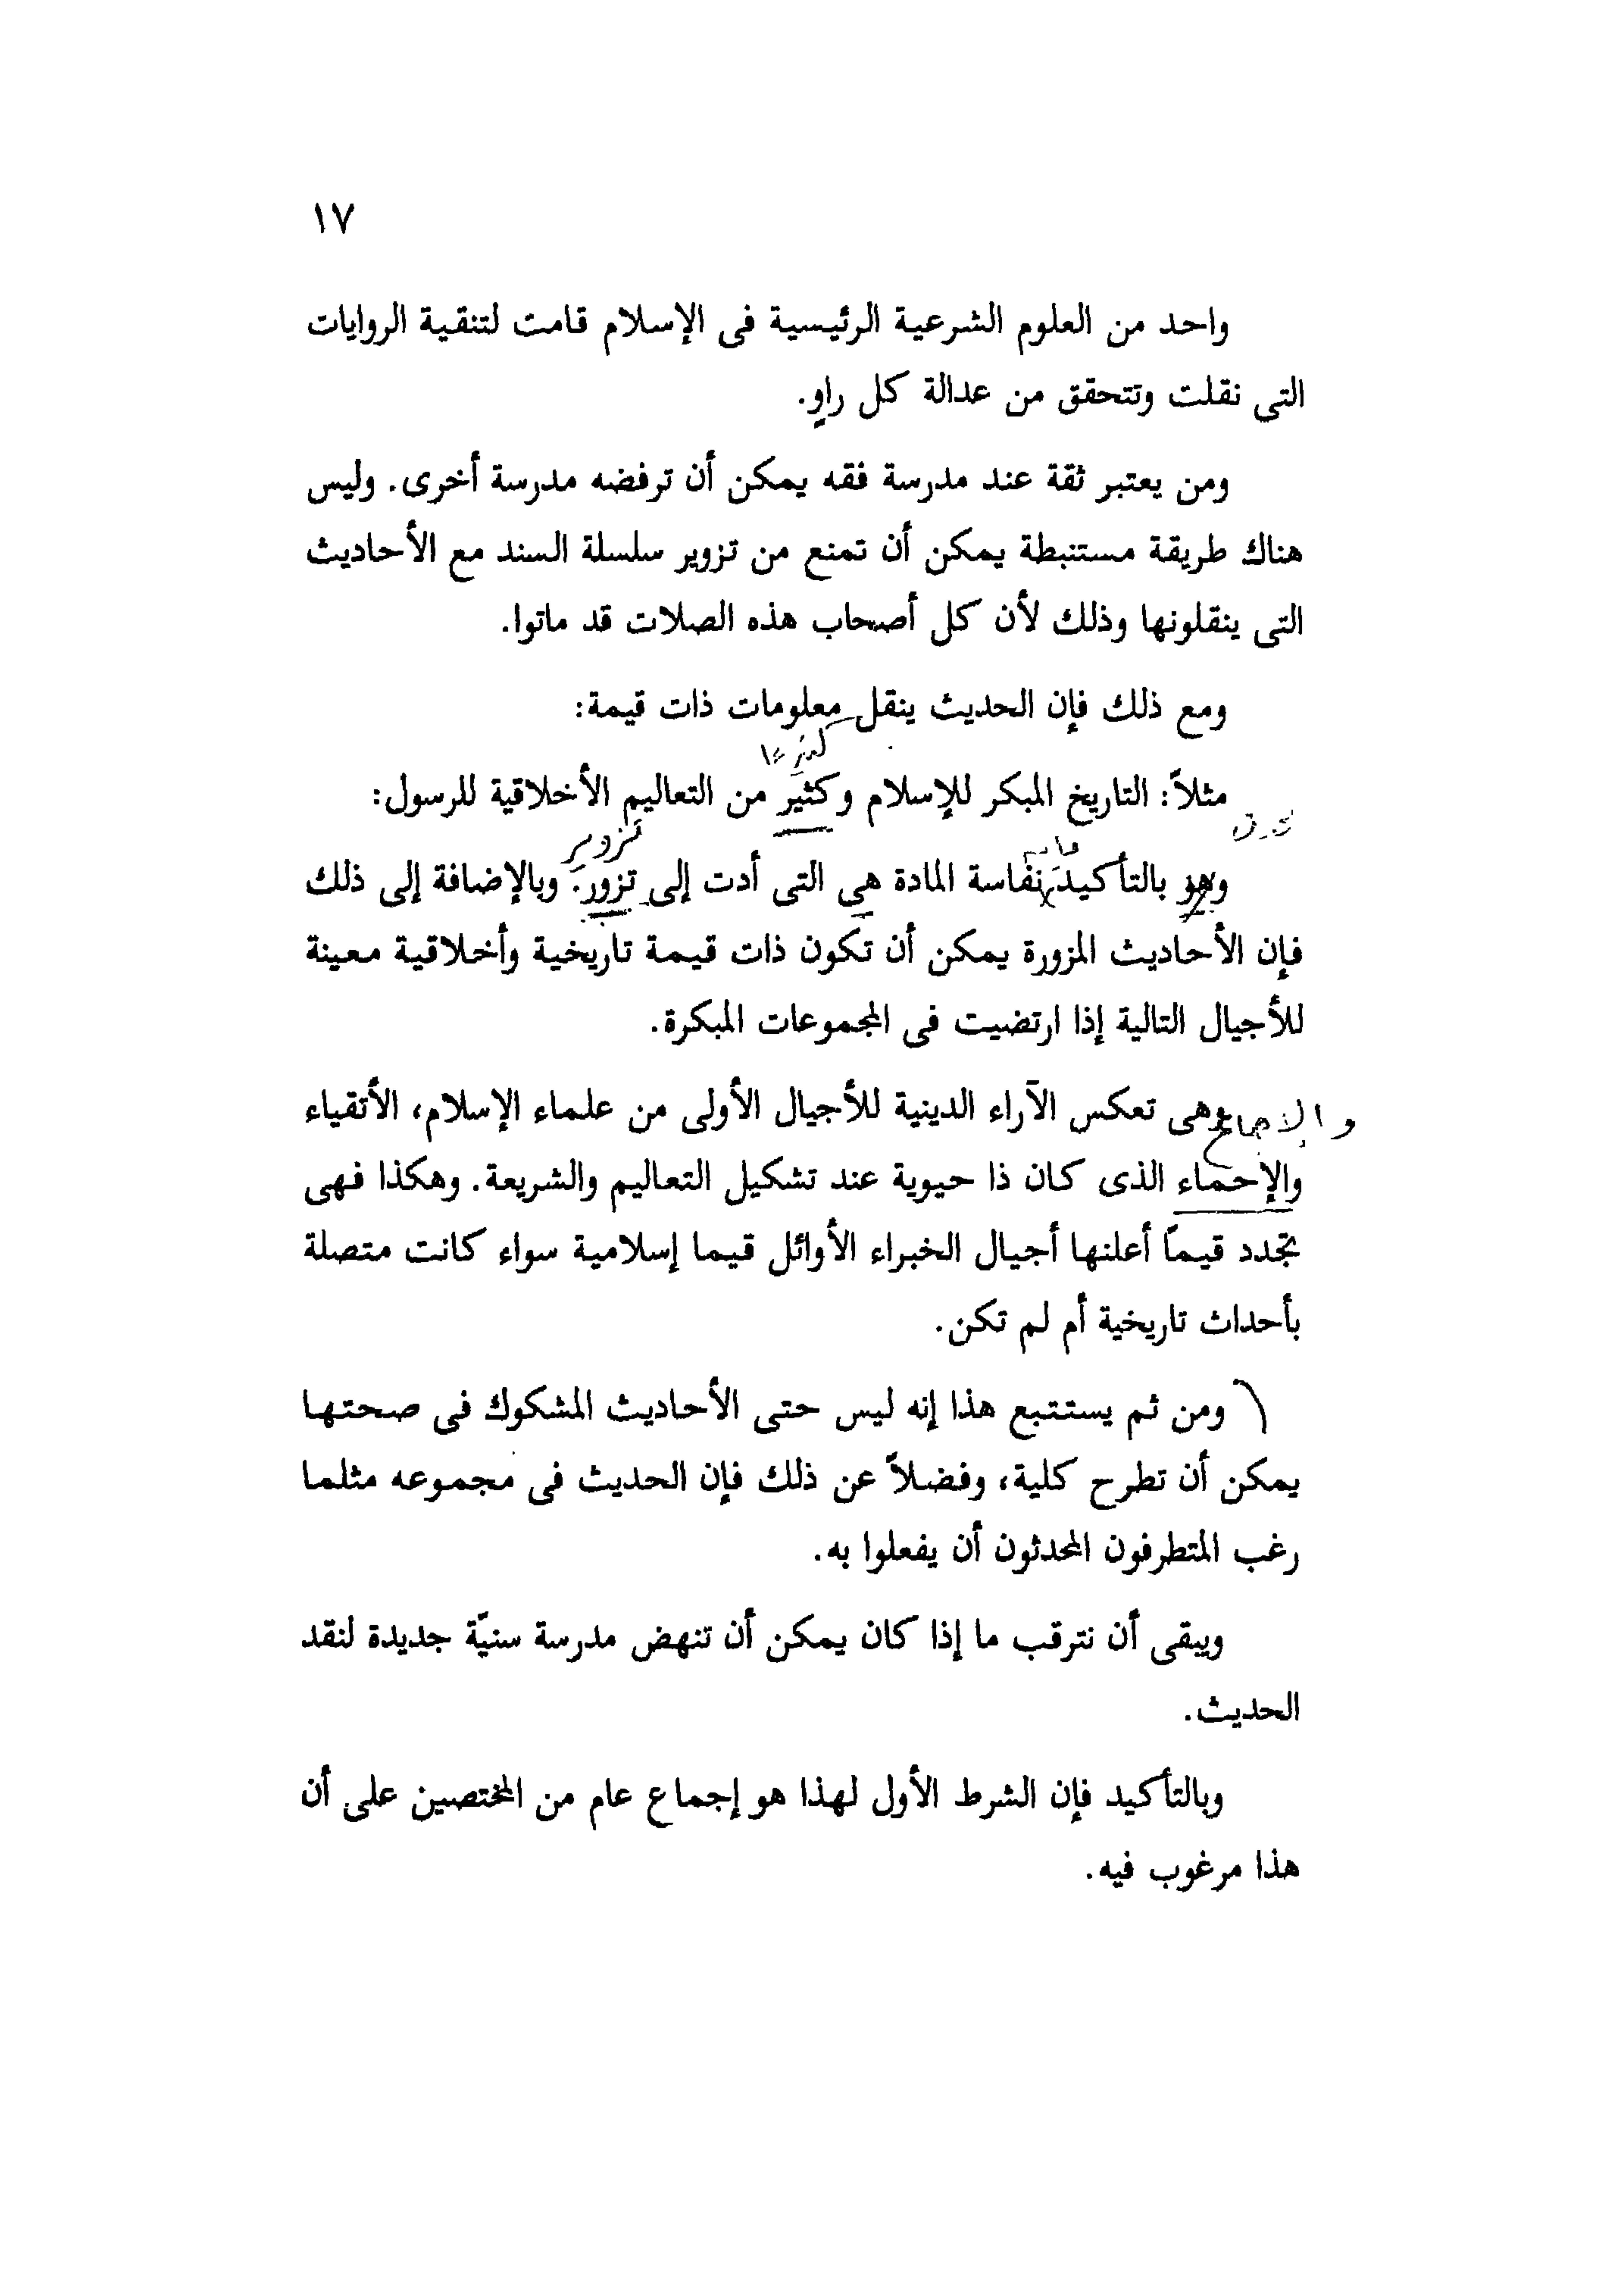 ١٧
واحد من العلوم الشرعية الرئيسية فى الإسلام قامت لتنقية الروايات
التى نقلت وتتحقق من عدالة كل راوٍ.
ومن يعتبر ثقة عند مدرسة فقه يمكن أن ترفضه مدرسة أخرى. وليس
هناك طريقة مستنبطة يمكن أن تمنع من تزوير سلسلة السند مع الأحاديث
التى ينقلونها وذلك لأن كل أصحاب هذه الصلات قد ماتوا.
ومع ذلك فإن الحديث ينقل معلومات ذات قيمة:
مثلاً: التاريخ المبكر للإسلام وكثير من التعاليم الأخلاقية للرسول:
تزوير
وهو بالتأكيد نفاسة المادة هى التى أدت إلى تزور. وبالإضافة إلى ذلك
فإن الأحاديث المزورة يمكن أن تكون ذات قيمة تاريخية وأخلاقية معينة
للأجيال التالية إذا ارتضيت فى المجموعات المبكرة.
والإجماع
وهى تعكس الآراء الدينية للأجيال الأولى من علماء الإسلام، الأتقياء
والإحماء الذى كان ذا حيوية عند تشكيل التعاليم والشريعة. وهكذا فهى
تجدد قيماً أعلنها أجيال الخبراء الأوائل قيما إسلامية سواء كانت متصلة
بأحداث تاريخية أم لم تكن.
ومن ثم يستتبع هذا إنه ليس حتى الأحاديث المشكوك فى صحتها
يمكن أن تطرح كلية، وفضلاً عن ذلك فإن الحديث فى مجموعه مثلما
رغب المتطرفون المحدثون أن يفعلوا به.
ويبقى أن نترقب ما إذا كان يمكن أن تنهض مدرسة سنيّة جديدة لنقد
الحديث.
وبالتأكيد فإن الشرط الأول لهذا هو إجماع عام من المختصين على أن
هذا مرغوب فيه.